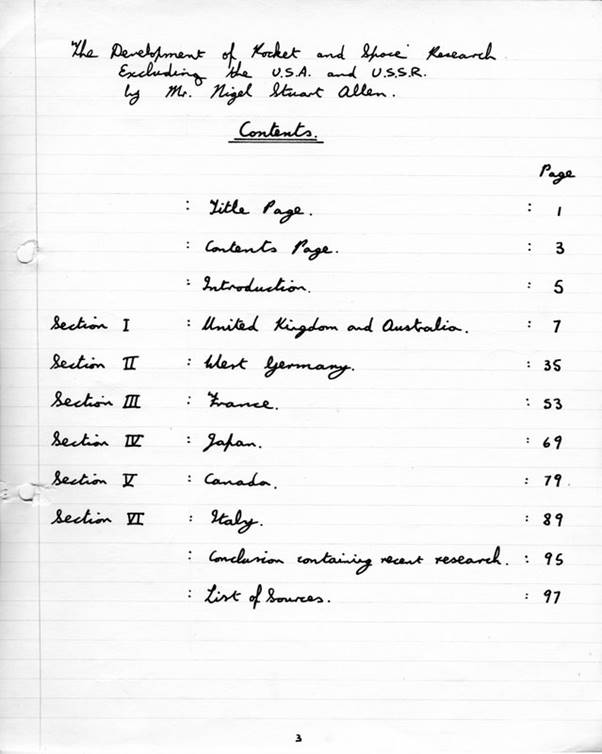 The Development of Rocket and Space Research
Excluding the U.S.A. and U.S.S.R.
by Mr. Nigel Stuart Allen.
Contents.
Page
: Title Page. : 1
: Contents Page. : 3
: Introduction. : 5
Section I : United Kingdom and Australia. : 7
Section II : West Germany. : 35
Section III : France. : 53
Section IV : Japan. : 69
Section V : Canada. : 79.
Section VI : Italy. : 89
: Conclusion containing recent research. : 95
: List of Sources. : 97
3